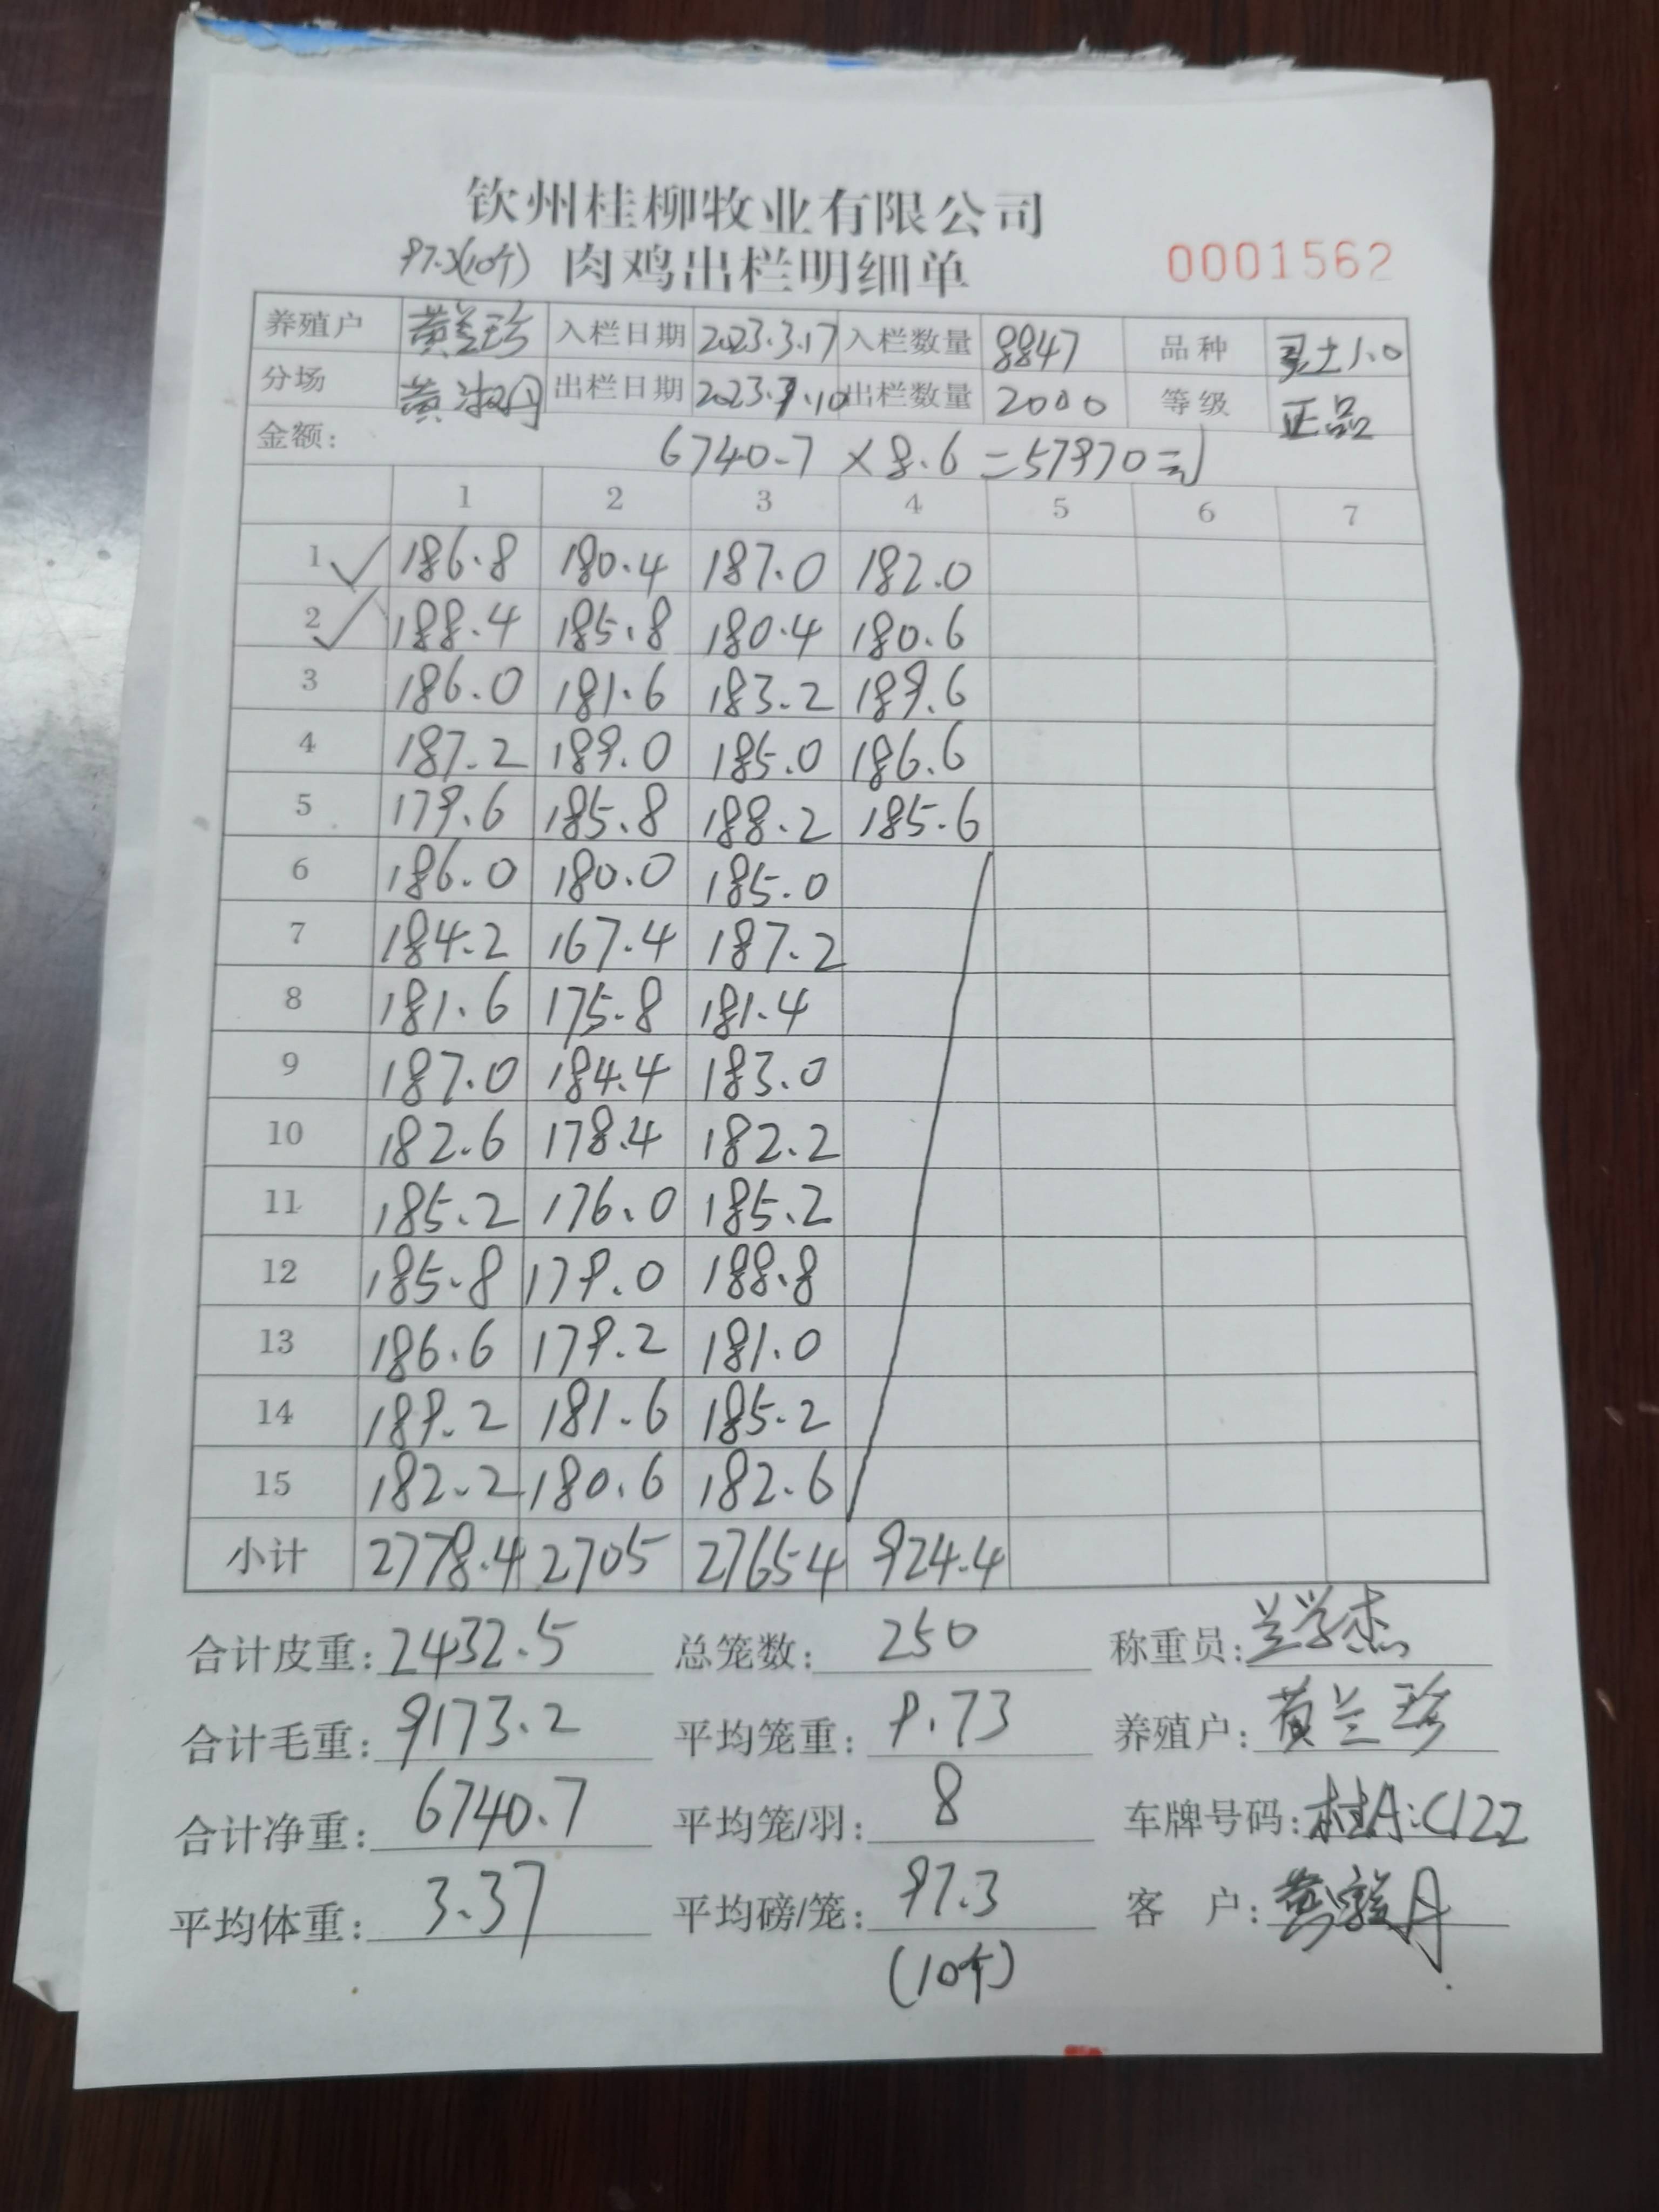 钦州桂柳牧业有限公司
97.3(10个) 肉鸡出栏明细单 0001562
养殖户 黄兰珍 入栏日期 2023.3.17 入栏数量 8847 品种 土1.0
分场 黄淑丹 出栏日期 2023.7.10 出栏数量 2000 等级 正品
金额: 6740.7 × 8.6 = 57970元
1 2 3 4 5 6 7
1 ✓ 186.8 180.4 187.0 182.0
2 ✓ 188.4 185.8 180.4 180.6
3 186.0 181.6 183.2 189.6
4 187.2 189.0 185.0 186.6
5 179.6 185.8 188.2 185.6
6 186.0 180.0 185.0
7 184.2 167.4 187.2
8 181.6 175.8 181.4
9 187.0 184.4 183.0
10 182.6 178.4 182.2
11 185.2 176.0 185.2
12 185.8 179.0 188.8
13 186.6 179.2 181.0
14 189.2 181.6 185.2
15 182.2 180.6 182.6
小计 2778.4 2705 2765.4 924.4
合计皮重: 2432.5 总笼数: 250 称重员: 兰学杰
合计毛重: 9173.2 平均笼重: 9.73 养殖户: 黄兰珍
合计净重: 6740.7 平均笼/羽: 8 车牌号码: 桂A:C122
平均体重: 3.37 平均磅/笼: 97.3 客 户:
(10个)